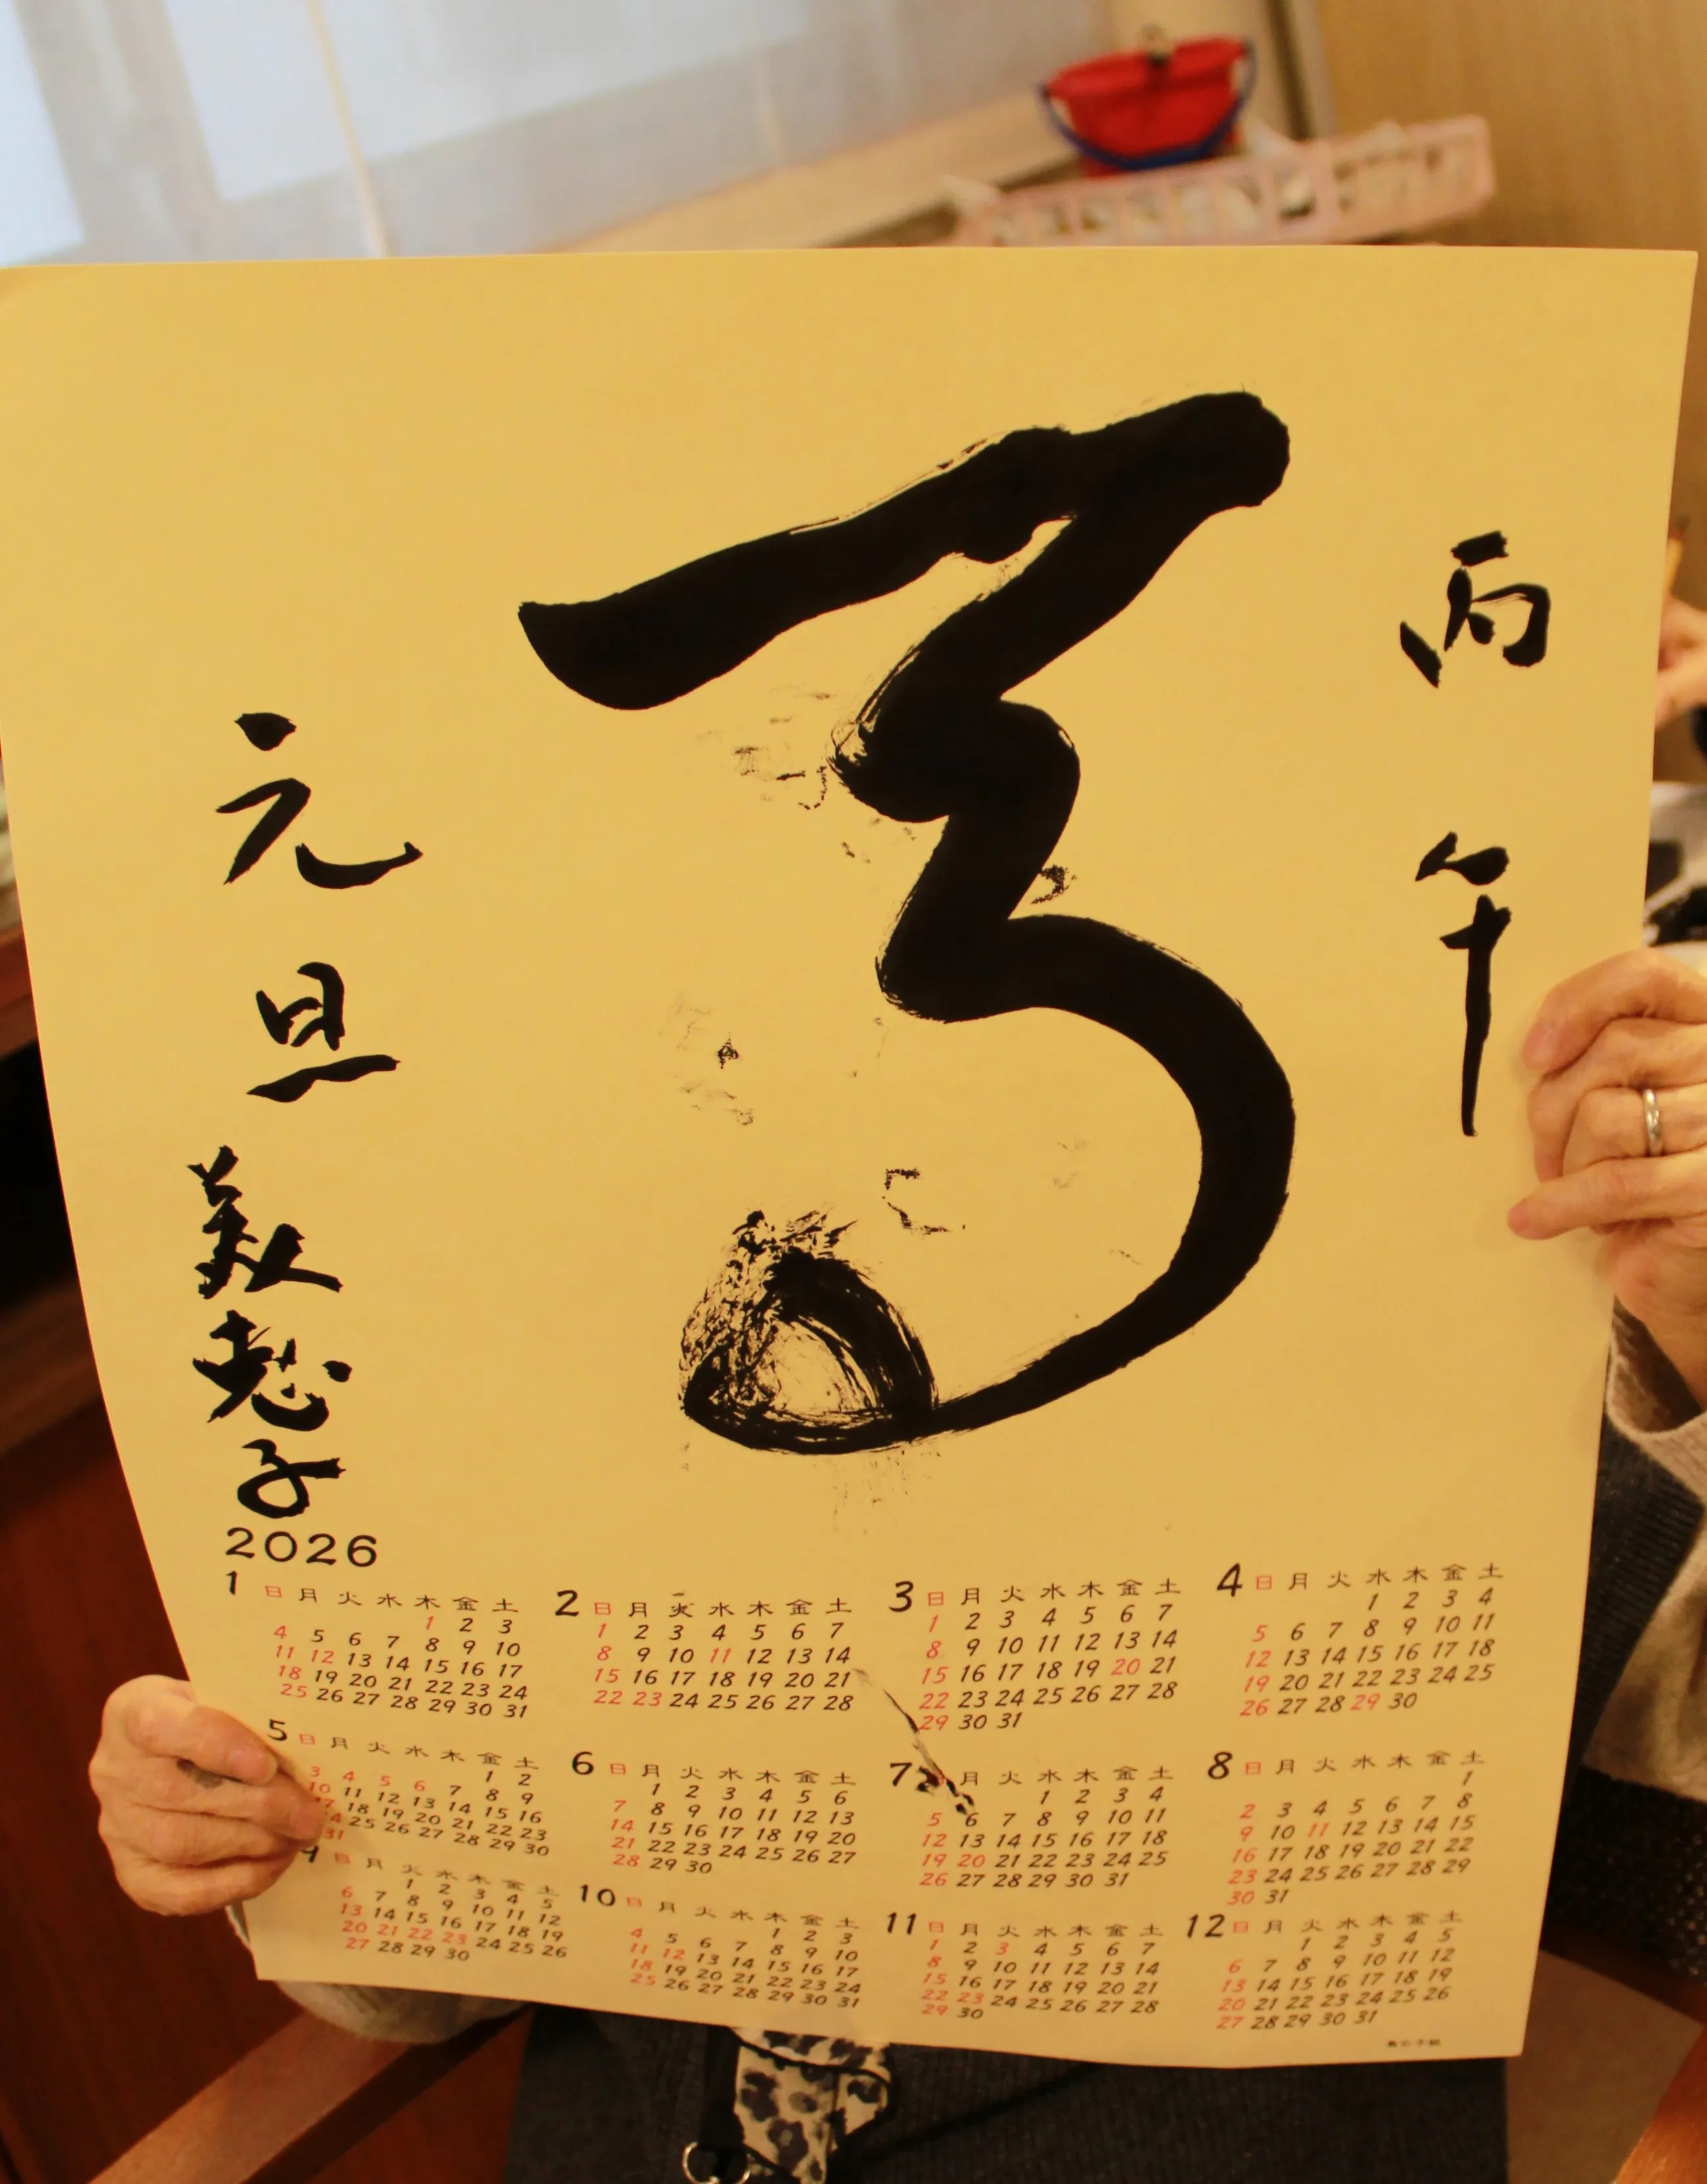 丙午
馬
元旦
美恵子
2026
1
日 月 火 水 木 金 土
1 2 3
4 5 6 7 8 9 10
11 12 13 14 15 16 17
18 19 20 21 22 23 24
25 26 27 28 29 30 31
2
日 月 火 水 木 金 土
1 2 3 4 5 6 7
8 9 10 11 12 13 14
15 16 17 18 19 20 21
22 23 24 25 26 27 28
3
日 月 火 水 木 金 土
1 2 3 4 5 6 7
8 9 10 11 12 13 14
15 16 17 18 19 20 21
22 23 24 25 26 27 28
29 30 31
4
日 月 火 水 木 金 土
1 2 3 4
5 6 7 8 9 10 11
12 13 14 15 16 17 18
19 20 21 22 23 24 25
26 27 28 29 30
5
日 月 火 水 木 金 土
1 2
3 4 5 6 7 8 9
10 11 12 13 14 15 16
17 18 19 20 21 22 23
25 26 27 28 29 30
31
6
日 月 火 水 木 金 土
1 2 3 4 5 6
7 8 9 10 11 12 13
14 15 16 17 18 19 20
21 22 23 24 25 26 27
28 29 30
7
月 火 水 木 金 土
1 2 3 4
5 6 7 8 9 10 11
12 13 14 15 16 17 18
19 20 21 22 23 24 25
26 27 28 29 30 31
8
日 月 火 水 木 金 土
1
2 3 4 5 6 7 8
9 10 11 12 13 14 15
16 17 18 19 20 21 22
23 24 25 26 27 28 29
30 31
9
日 月 火 水 木 金 土
1 2 3 4 5
6 7 8 9 10 11 12
13 14 15 16 17 18 19
20 21 22 23 24 25 26
27 28 29 30
10
日 月 火 水 木 金 土
1 2 3
4 5 6 7 8 9 10
11 12 13 14 15 16 17
18 19 20 21 22 23 24
25 26 27 28 29 30 31
11
日 月 火 水 木 金 土
1 2 3 4 5 6 7
8 9 10 11 12 13 14
15 16 17 18 19 20 21
22 23 24 25 26 27 28
29 30
12
日 月 火 水 木 金 土
1 2 3 4 5
6 7 8 9 10 11 12
13 14 15 16 17 18 19
20 21 22 23 24 25 26
27 28 29 30 31